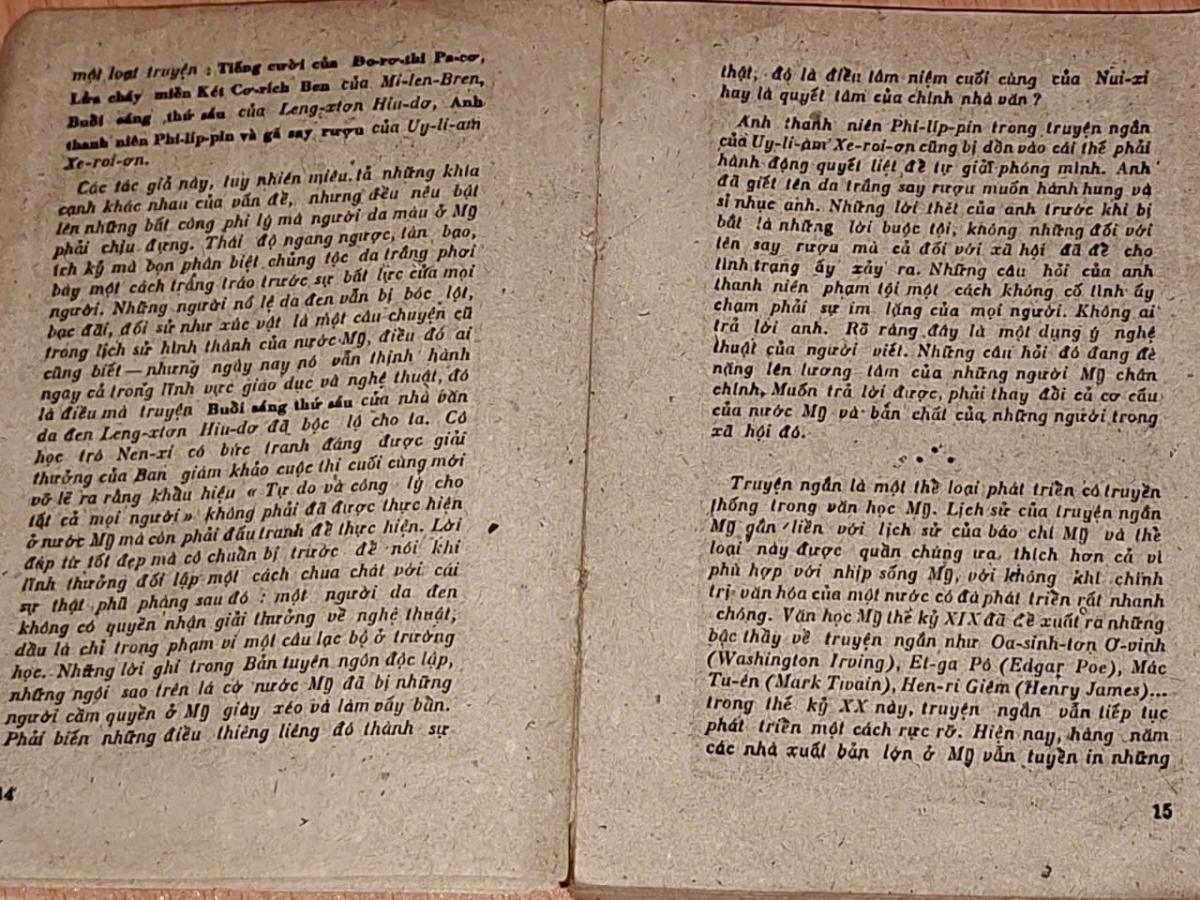 một loạt truyện : Tiếng cười của Đo-rơ-thi Pa-cơ,
Lửa cháy miền Két Cơ-rich Ben của Mi-len-Bren,
Buổi sáng thứ sáu của Leng-xtơn Hiu-dơ, Anh
thanh niên Phi-líp-pin và gã say rượu của Uy-li-am
Xe-roi-ơn.
Các tác giả này, tuy nhiên miêu tả những khía
cạnh khác nhau của vấn đề, nhưng đều nêu bật
lên những bất công phi lý mà người da màu ở Mỹ
phải chịu đựng. Thái độ ngang ngược, tàn bạo,
ích kỷ mà bọn phân biệt chủng tộc da trắng phơi
bày một cách trắng tráo trước sự bất lực của mọi
người. Những người nô lệ da đen vẫn bị bóc lột,
bạc đãi, đối sử như xúc vật là một câu chuyện cũ
trong lịch sử hình thành của nước Mỹ, điều đó ai
cũng biết — nhưng ngày nay nó vẫn thịnh hành
ngay cả trong lĩnh vực giáo dục và nghệ thuật, đó
là điều mà truyện Buổi sáng thứ sáu của nhà văn
da đen Leng-xtơn Hiu-dơ đã bộc lộ cho ta. Cô
học trò Nen-xi có bức tranh đáng được giải
thưởng của Ban giám khảo cuộc thi cuối cùng mới
vỡ lẽ ra rằng khẩu hiệu « Tự do và công lý cho
tất cả mọi người » không phải đã được thực hiện
ở nước Mỹ mà còn phải đấu tranh để thực hiện. Lời
đáp từ tốt đẹp mà cô chuẩn bị trước để nói khi
lĩnh thưởng đối lập một cách chua chát với cái
sự thật phũ phàng sau đó : một người da đen
không có quyền nhận giải thưởng về nghệ thuật,
dầu là chỉ trong phạm vi một câu lạc bộ ở trường
học. Những lời ghi trong Bản tuyên ngôn độc lập,
những ngôi sao trên lá cờ nước Mỹ đã bị những
người cầm quyền ở Mỹ giày xéo và làm vấy bẩn.
Phải biến những điều thiêng liêng đó thành sự
14
thật, đó là điều tâm niệm cuối cùng của Nui-xi
hay là quyết tâm của chính nhà văn ?
Anh thanh niên Phi-líp-pin trong truyện ngắn
của Uy-li-àm Xe-roi-ơn cũng bị dồn vào cái thế phải
hành động quyết liệt để tự giải phóng mình. Anh
đã giết tên da trắng say rượu muốn hành hung và
sỉ nhục anh. Những lời thét của anh trước khi bị
bắt là những lời buộc tội, không những đối với
tên say rượu mà cả đối với xã hội đã để cho
tình trạng ấy xảy ra. Những câu hỏi của anh
thanh niên phạm tội một cách không cố tình ấy
chạm phải sự im lặng của mọi người. Không ai
trả lời anh. Rõ ràng đây là một dụng ý nghệ
thuật của người viết. Những câu hỏi đó đang đè
nặng lên lương tâm của những người Mỹ chân
chính. Muốn trả lời được, phải thay đổi cả cơ cấu
của nước Mỹ và bản chất của những người trong
xã hội đó.
Truyện ngắn là một thể loại phát triển có truyền
thống trong văn học Mỹ. Lịch sử của truyện ngắn
Mỹ gắn liền với lịch sử của báo chí Mỹ và thể
loại này được quần chúng ưa thích hơn cả vì
phù hợp với nhịp sống Mỹ, với không khí chính
trị văn hóa của một nước có đà phát triển rất nhanh
chóng. Văn học Mỹ thế kỷ XIX đã đề xuất ra những
bậc thầy về truyện ngắn như Oa-sinh-tơn Ơ-vinh
(Washington Irving), Et-ga Pô (Edgar Poe), Mác
Tu-ên (Mark Twain), Hen-ri Giêm (Henry James)...
trong thế kỷ XX này, truyện ngắn vẫn tiếp tục
phát triển một cách rực rỡ. Hiện nay, hàng năm
các nhà xuất bản lớn ở Mỹ vẫn tuyển in những
15